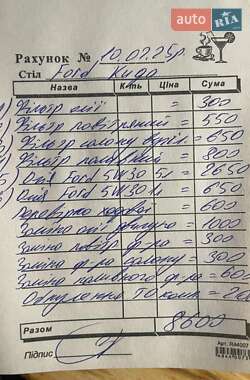 AUTO RIA
Рахунок № 10.02.25р.
Стіл Ford Kuga
Назва К-ть Ціна Сума
Фільтр олії = 300
Фільтр повітряний = 550
Фільтр салону вугіл = 650
Фільтр паливний = 800
Олія Ford 5W30 5л = 2650
Олія Ford 5W30 1л = 650
Перевірка ходової = 600
Заміна олії двигуна = 1000
Заміна повітр ф-ра = 300
Заміна ф-ра салону = 300
Заміна паливного ф-ра = 60
Обнулення ТО
Разом 8600
Підпис
Арт. RM4007